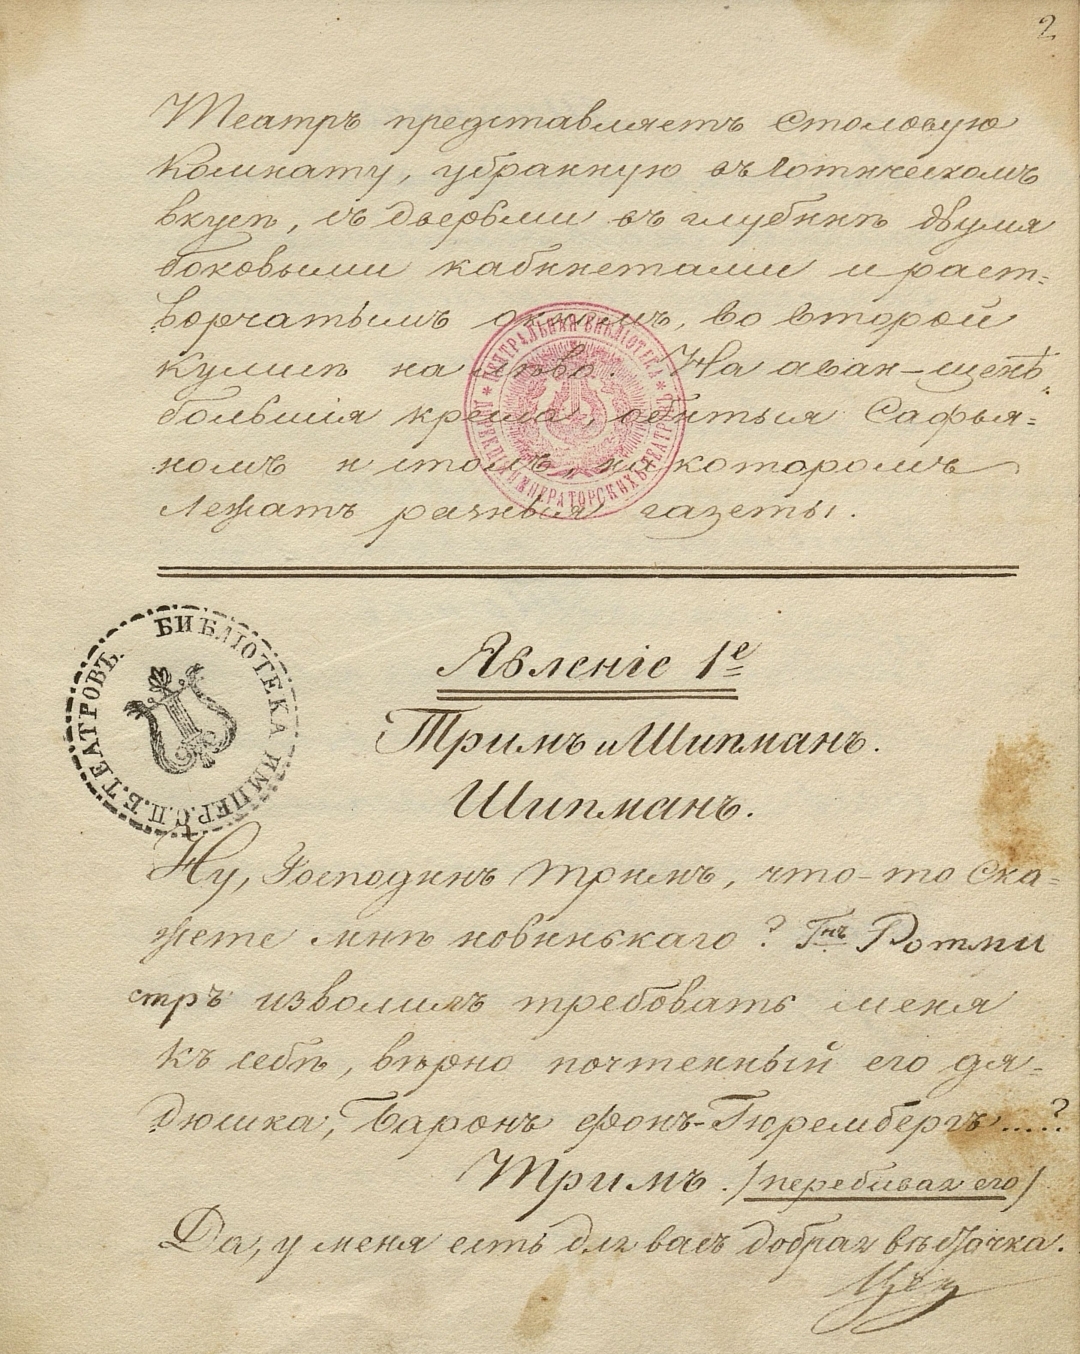 2
Театръ представляетъ столовую
комнату, убранную въ Готическомъ
вкусѣ, съ дверьми въ глубинѣ двумя
боковыми кабинетами и раст=
ворчатымъ окномъ, во второй
кулисѣ на лѣво. На аван-сценѣ
большія кресла, обитыя Сафья=
номъ и столъ, на которомъ
лежатъ разныя газеты.
ЦЕНТРАЛЬНАЯ БИБЛІОТЕКА
ДИРЕКЦІИ ИМПЕРАТОРСКИХЪ ТЕАТРОВЪ
БИБЛІОТЕКА ИМПЕР. С.П.Б. ТЕАТРОВЪ.
Явленіе 1е
Тримъ и Шипманъ.
Шипманъ.
Ну, Господинъ Тримъ, что-то ска=
жете мнѣ новинькаго? Гнъ Ротми
стръ изволилъ требовать меня
къ себѣ, вѣрно почтенный его дя=
дюшка, Баронъ фонъ-Гюрембергъ.....?
Тримъ. /перебивая его/
Да, у меня есть для васъ добрая вѣсточка.